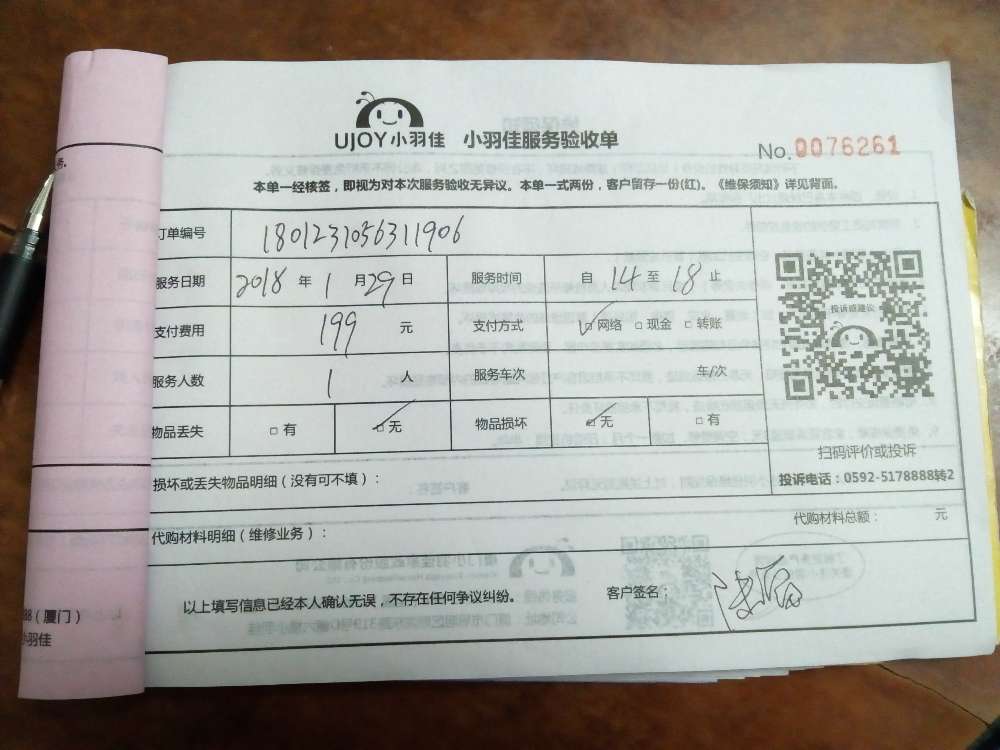 UJOY小羽佳 小羽佳服务验收单
No.0076261
本单一经核签，即视为对本次服务验收无异议。本单一式两份，客户留存一份(红)。《维保须知》详见背面。
订单编号 1801231056311906
服务日期 2018 年 1 月 29 日 服务时间 自 14 至 18 止
支付费用 199 元 支付方式 ☑网络 □现金 □转账
服务人数 1 人 服务车次 车/次
物品丢失 □有 ☑无 物品损坏 ☑无 □有
投诉或建议
扫码评价或投诉
投诉电话：0592-5178888转2
损坏或丢失物品明细（没有可不填）：
代购材料明细（维修业务）： 代购材料总额： 元
以上填写信息已经本人确认无误，不存在任何争议纠纷。 客户签名：
88（厦门）
小羽佳